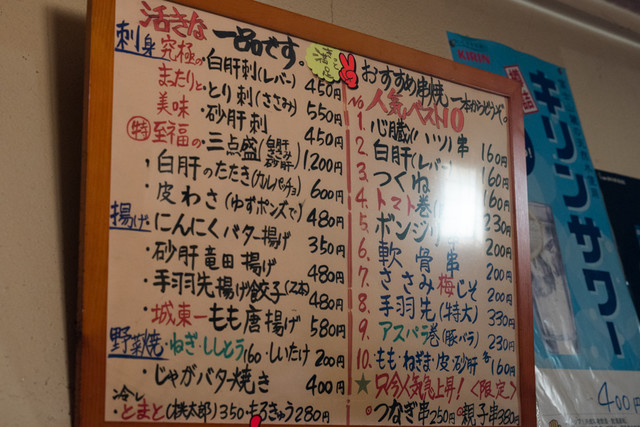 活きな一品です。
刺身 究極の 白肝刺(レバー) 450円
まったりと とり刺(ささみ) 550円
美味 ・砂肝刺 450円
特 至福の・三点盛 1,200円
・白肝のたたき(カルパッチョ) 600円
・皮わさ(ゆずポンズで) 480円
揚げ にんにくバター揚げ 350円
・砂肝竜田揚げ 480円
・手羽先揚げ餃子(2本) 480円
・城東一もも唐揚げ 580円
野菜焼・ねぎ・ししとう160・しいたけ 200円
・じゃがバター焼き 400円
冷し
・とまと(桃太郎)350・もろきゅう280円
おすすめ串焼 一本からどうぞ。
No 人気ベスト10
1. 心臓(ハツ)串 160円
2. 白肝(レバー) 160円
3. つくね 160円
4. トマト巻 230円
5. ボンジリ 200円
6. 軟骨串 200円
7. ささみ梅じそ 200円
8. 手羽先(特大) 330円
9. アスパラ巻(豚バラ) 230円
10. もも・ねぎま・皮・砂肝 各160円
★只今人気急上昇!〈限定〉
◎つなぎ串250円 ◎親子串380円
KIRIN
キリンサワー
400円